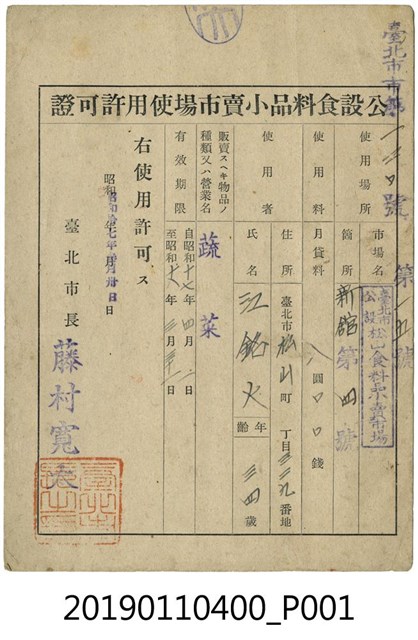 臺北市市
第一五號
公設食料品小賣市場使用許可證
使用場所
市場名
臺北市
公設松山食料品小賣市場
箇所
新館第四號
使用料
月貸料
八圓〇〇錢
使用者
住所
臺北市松山町 丁目三三九番地
氏名
江銘火
年齡
三四歲
販賣スヘキ物品ノ
種類又ハ營業名
蔬菜
有效期限
自昭和十七年四月一日
至昭和十八年三月三十一日
右使用許可ス
昭和拾七年 月 日
臺北市長
藤村寬太
20190110400_P001